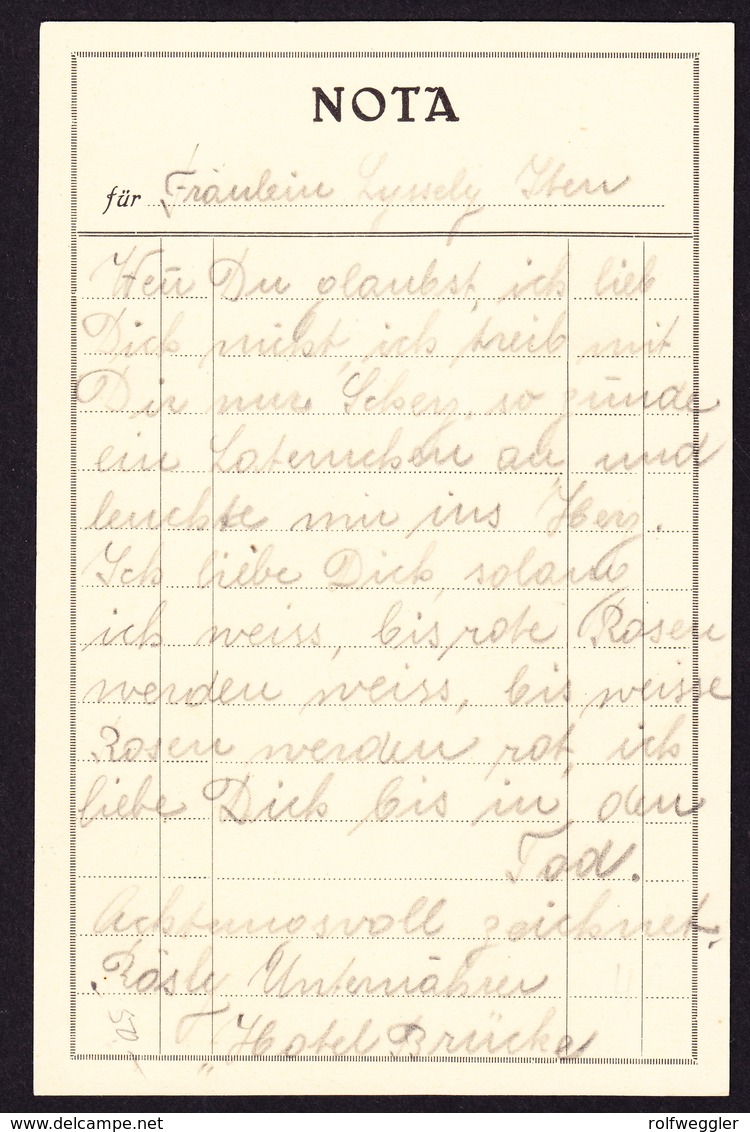 NOTA
für Fräulein Lyssely Iten
Wen̄ Du glaubst, ich lieb
Dich nicht, ich treib mit
Dir nur Scherz, so zünde
ein Laternchen an, und
leuchte mir ins Herz.
Ich liebe Dich, solang
ich weiss, bis rote Rosen
werden weiss, bis weisse
Rosen werden rot, ich
liebe Dich bis in den
Tod.
Achtungsvoll zeichnet.
Rösly Unternährer
"Hotel Brücke
50
delcampe.net
rolfweggler